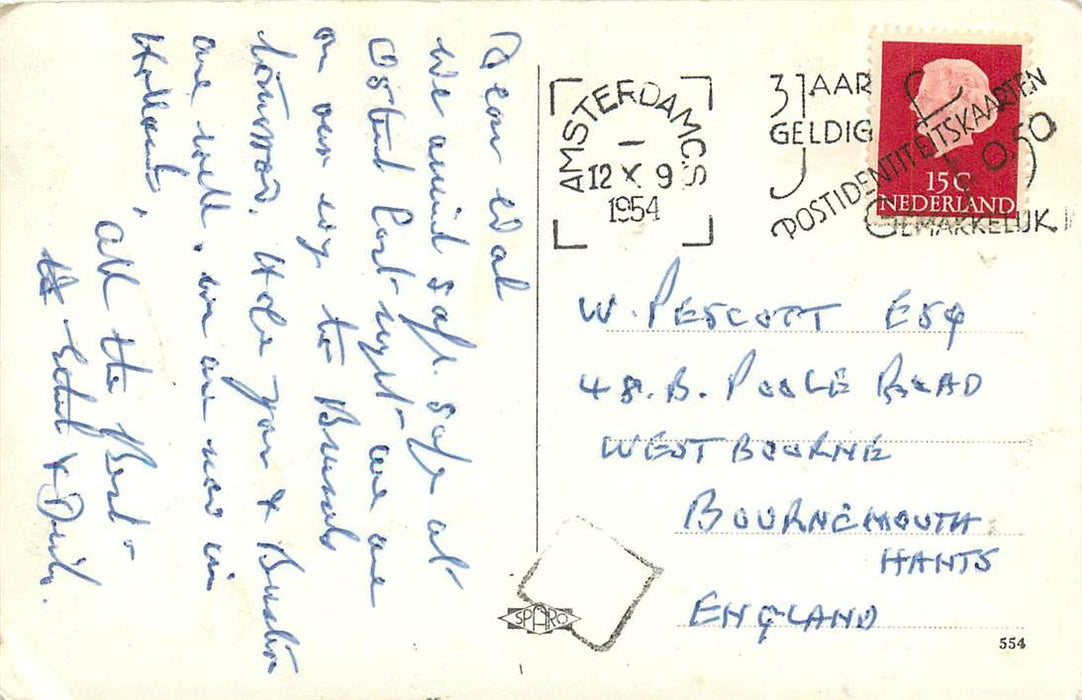 Dear Wal
We arrived safe. safe at
Ostend last night we are
on our way to Brussels
tomorrow. Hope you &
are well. we are now in
Holland,
all the Best
&
AMSTERDAM C.S.
I
12 X 9
1954
3 JAAR
GELDIG
POSTIDENTITEITSKAARTEN
f 0.50
GEMAKKELIJK!
15 C
NEDERLAND
W. PESCOTT ESQ
48.B. POOLE ROAD
WESTBOURNE
BOURNEMOUTH
HANTS
ENGLAND
SPARO
554